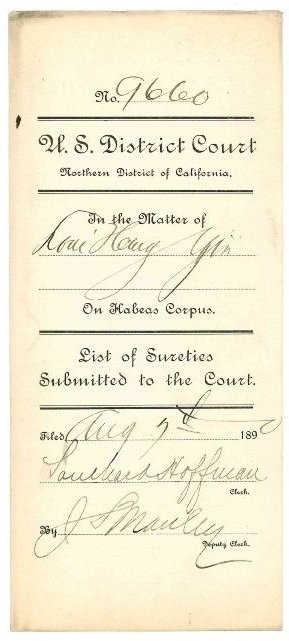 No. 9660
U. S. District Court
Northern District of California.
In the Matter of
Loui Hang Yin
On Habeas Corpus.
List of Sureties
Submitted to the Court.
Filed Aug 7th 189
Southard Hoffman
Clerk.
By J S Manley
Deputy Clerk.